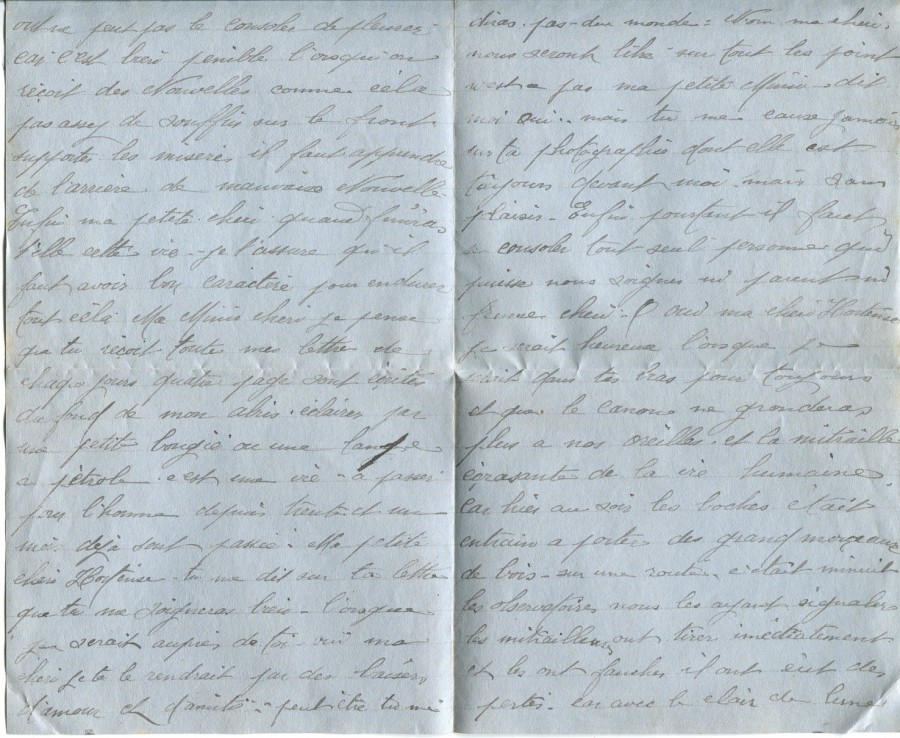 peut pas le consoler de pleurer
car c'est breis penible l'orsqu'on
reçoit des Nouvelles comme cela
pas assez de souffris sur le front
supporter les miseres il faut apprendre
de l'arrière de mauvaise Nouvelle
Enfin ma petite cheri quand finiras
t'elle cette vie - je t'assure qu'il
faut avoir bon caractère pour endurer
tout cèla Ma Mimi cheri je pense
que tu reçoit toute mes lettre de
chaque jours quatre page sont écrites
du fond de mon abris éclairer par
une petite bougie ou une lampe
a pètrole c'est une vie - a passer
pour l'homme depuis trente et un
moi deja sont passée. Ma petite
chéri Hortense tu me dit sur ta lettre
que tu me soigneras breis - l'orsque
je serait auprès de toi - oui ma
cheri je te le rendrait par des baisers
d'amour et d'amitié - peut être tu me
diras pas deux monde = Nom ma cheri
nous seront libre sur tout les point
n'est-ce pas ma petite Mimi dit
moi oui.. mais tu me cause jamais
sur ta photographie dont elle est
toujours devant moi mais sans
plaisir - Enfin pourtant il faut
se consoler tout seul personne qui
puisse nous soigner ni parent ni
femme cheri - O oui ma cheri Hortense
je serait heureux l'orsque je
serait dans tes bras pour toujours
et que le canons ne gronderas
plus a nos oreilles et la mitraille
ècrasante de la vie humaine
car hier au soir les boches ètait
entrain a porter des grand morceaux
de bois - sur une route, c'ètait minuit
les observatoires nous les ayant signalers
les mitrailleurs ont tirer imèdiatement
et les ont faucher il ont eùt des
pertes - car avec le clair de lune